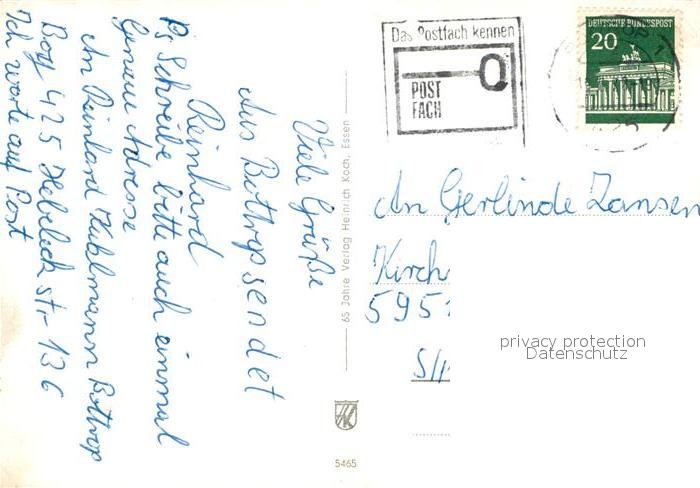 Viele Grüße
Aus Bottrop sendet
Reinhard
Ps Schreibe bitte auch einmal
Genaue Adresse
An Reinhard Kuhlmann Bottrop
Boy 425 Hebeleckstr- 136
Ich warte auf Post
65 Jahre Verlag Heinrich Koch, Essen
HK
5465
Das Postfach kennen
POST
FACH
DEUTSCHE BUNDESPOST
20
An Gerlinde Jansen
Kirch
595
privacy protection
Datenschutz